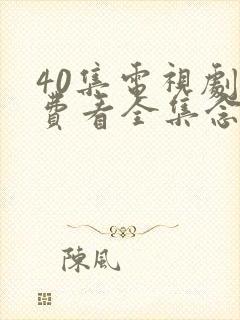 40集電視劇
費看全集念
陳風